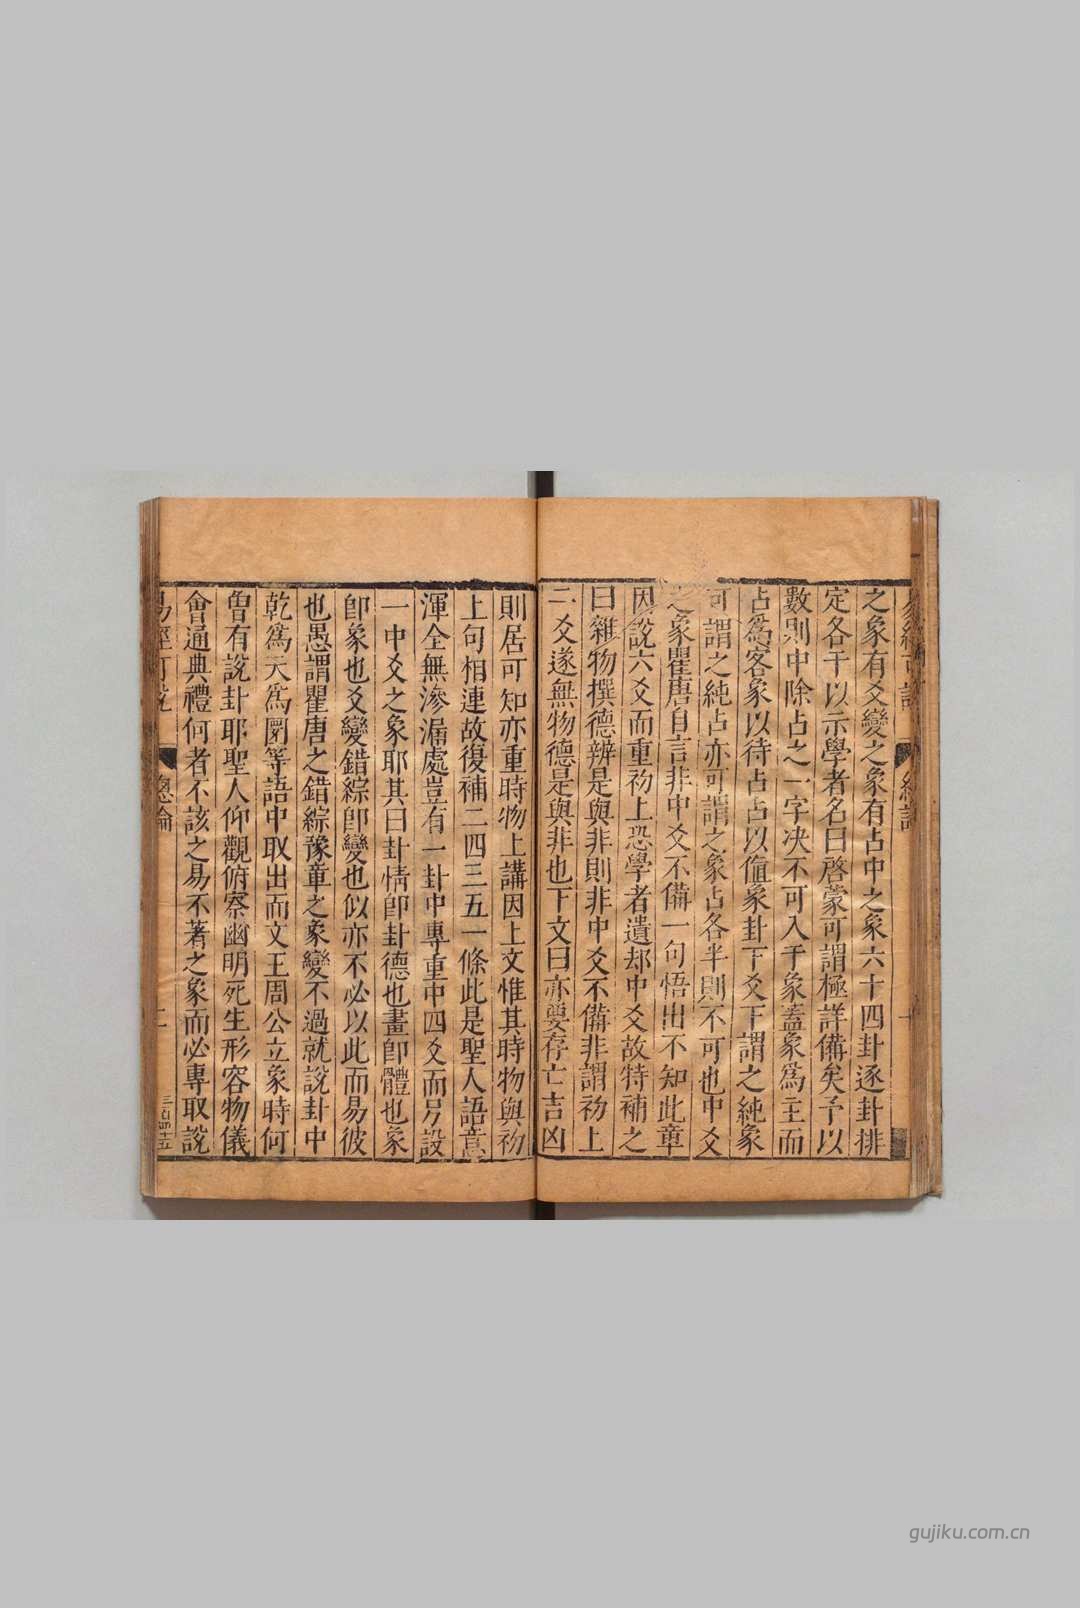 之象有爻變之象有占中之象六十四卦逐卦排
定各于以示學者名曰啓蒙可謂極詳備矣予以
數則中除占之一字决不可入于象蓋象爲主而
占爲客象以待占占以值象卦下爻下謂之純象
可謂之純占亦可謂之象占各半則不可也中爻
之象瞿唐自言非中爻不備一句悟出不知此章
因說六爻而重初上恐學者遺却中爻故特補之
曰雜物撰德辨是與非則非中爻不備非謂初上
二爻遂無物德是與非也下文曰亦要存亡吉凶
則居可知亦重時物上講因上文惟其時物與初
上句相連故復補二四三五一條此是聖人語意
渾全無滲漏處豈有一卦中專重中四爻而另設
一中爻之象耶其曰卦情卽卦德也畫卽體也象
卽象也爻變錯綜卽變也似亦不必以此而易彼
也愚謂瞿唐之錯綜豫章之象變不過就說卦中
乾爲天爲圜等語中取出而文王周公立象時何
曾有說卦耶聖人仰觀俯察幽明死生形容物儀
會通典禮何者不該之易不著之象而必專取說
易經可說 總論 二
gujiku.com.cn